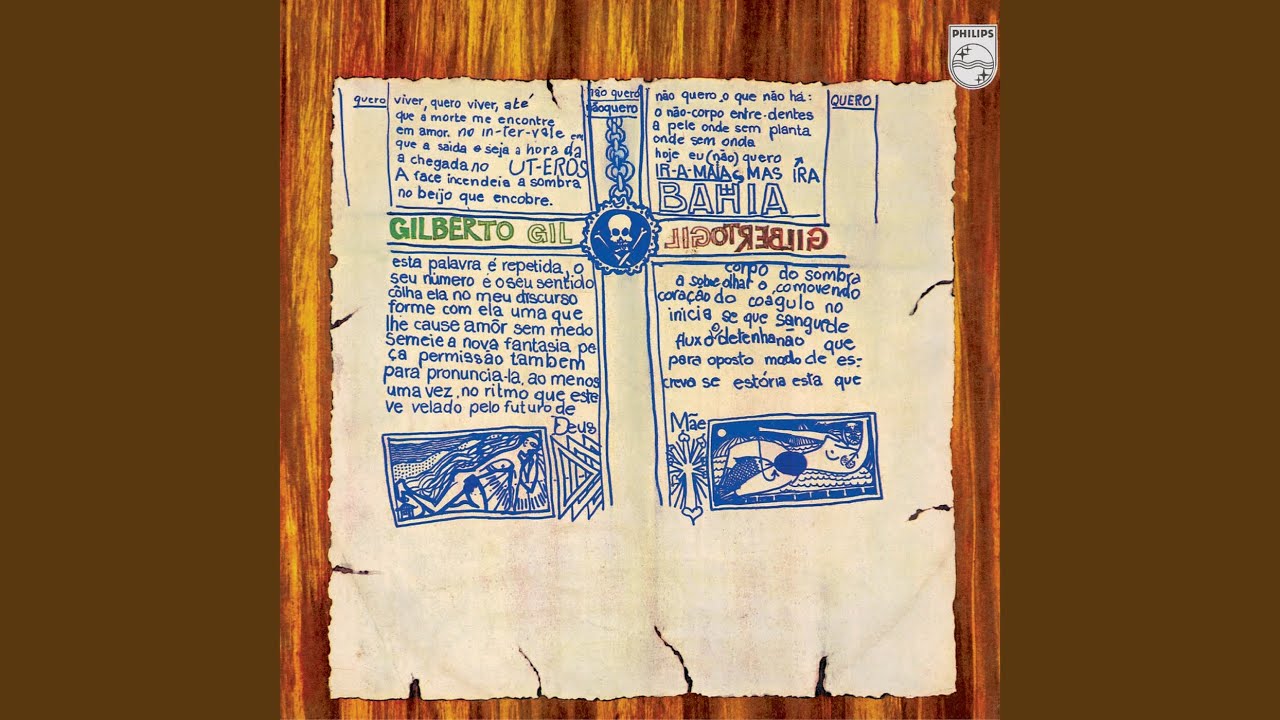 PHILIPS
quero
viver, quero viver, até
que a morte me encontre
em amor. no in-ter-vale em
que a saida e seja a hora da
a chegada no UT-EROS
A face incendeia a sombra
no beijo que encobre.
não quero
nãoquero
não quero o que não há:
o não-corpo entre-dentes
a pele onde sem planta
onde sem onda
hoje eu (não) quero
IR-A-MAIAS MAS IRA
BAHIA
QUERO
GILBERTO GIL
GILBERTOGIL
esta palavra é repetida, o
seu número é o seu sentido
côlha ela no meu discurso
forme com ela uma que
lhe cause amôr sem medo
Semeie a nova fantasia pe
ça permissão tambem
para pronuncia-la, ao menos
uma vez, no ritmo que este
ve velado pelo futuro de
Deus
corpo do sombra
a sobre olhar o, comovendo
coração do coagulo no
inicia se que sanguede
fluxo o detenha não que
para oposto modo de es-
creva se estória esta que
Mãe